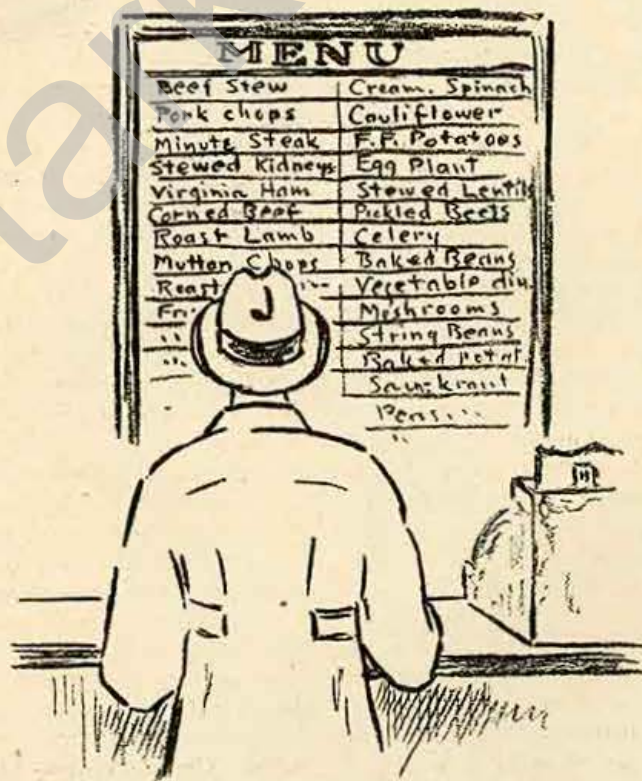 MENU
Beef Stew
Pork chops
Minute Steak
Stewed Kidneys
Virginia Ham
Corned Beef
Roast Lamb
Mutton Chops
Roast
Cream. Spinach
Cauliflower
F.F. Potatoes
Egg Plant
Stewed Lentils
Pickled Beets
Celery
Baked Beans
Vegetable din.
Mushrooms
String Beans
Baked potat
Saurkraut
Peas